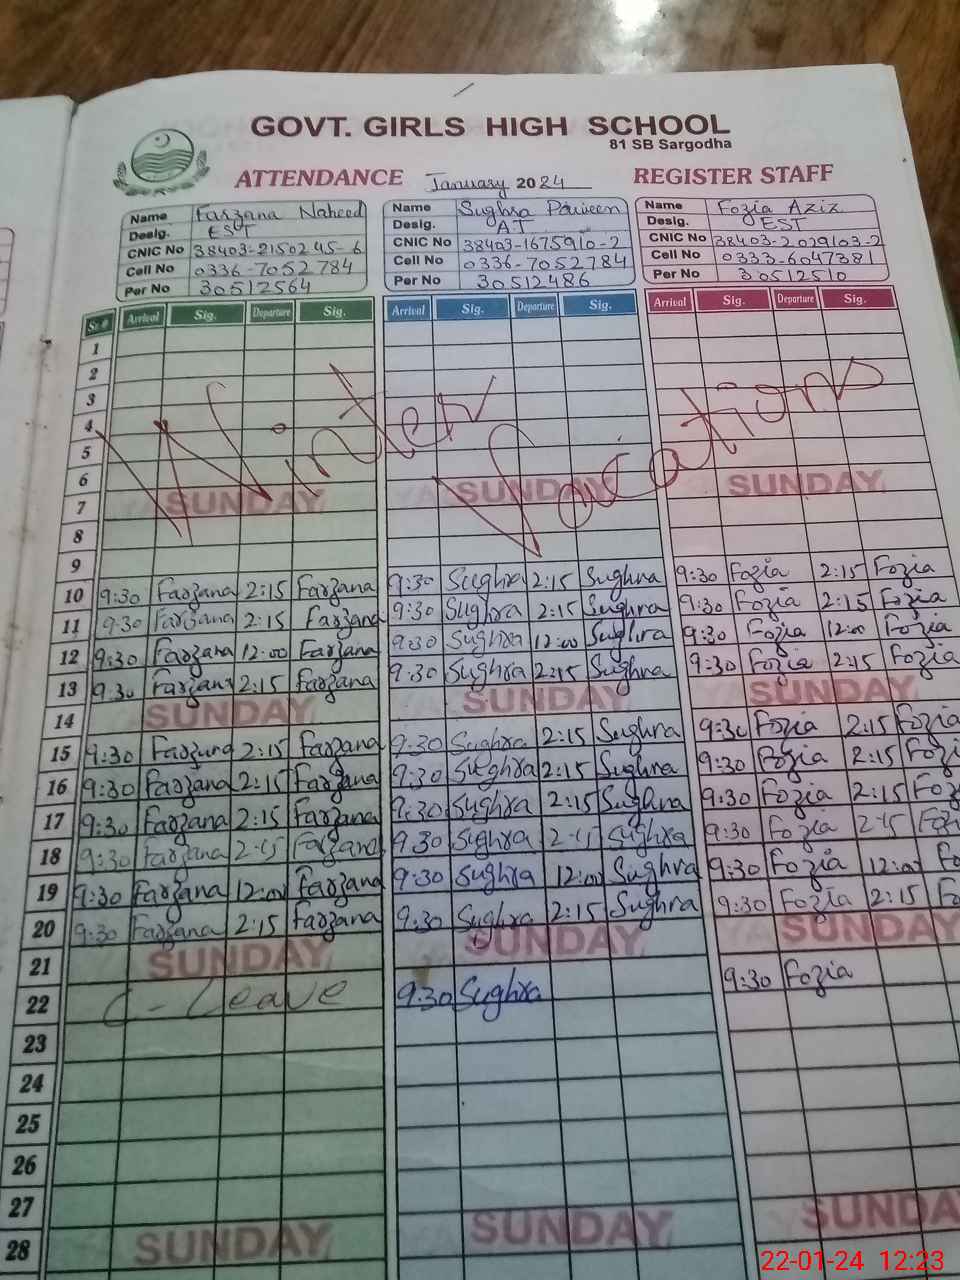 GOVT. GIRLS HIGH SCHOOL
81 SB Sargodha
ATTENDANCE January 2024 REGISTER STAFF
Name Farzana Naheed Name Sughra Parveen Name Fozia Aziz
Desig. EST Desig. AT Desig. EST
CNIC No 38403-2150245-6 CNIC No 38403-1675910-2 CNIC No 38403-2029103-2
Cell No 0336-7052784 Cell No 0336-7052784 Cell No 0333-6047381
Per No 30512564 Per No 30512486 Per No 30512510
Sr.# Arrival Sig. Departure Sig. Arrival Sig. Departure Sig. Arrival Sig. Departure Sig.
1
2
3
4
5
Winter Vacations
6
7 SUNDAY SUNDAY SUNDAY
8
9
10 9:30 Farzana 2:15 Farzana 9:30 Sughra 2:15 Sughra 9:30 Fozia 2:15 Fozia
11 9:30 Farzana 2:15 Farzana 9:30 Sughra 2:15 Sughra 9:30 Fozia 2:15 Fozia
12 9:30 Farzana 12:00 Farzana 9:30 Sughra 12:00 Sughra 9:30 Fozia 12:00 Fozia
13 9:30 Farzana 2:15 Farzana 9:30 Sughra 2:15 Sughra 9:30 Fozia 2:15 Fozia
14 SUNDAY SUNDAY SUNDAY
15 9:30 Farzana 2:15 Farzana 9:30 Sughra 2:15 Sughra 9:30 Fozia 2:15 Fozia
16 9:30 Farzana 2:15 Farzana 9:30 Sughra 2:15 Sughra 9:30 Fozia 2:15 Fozi
17 9:30 Farzana 2:15 Farzana 9:30 Sughra 2:15 Sughra 9:30 Fozia 2:15 Foz
18 9:30 Farzana 2:15 Farzana 9:30 Sughra 2:15 Sughra 9:30 Fozia 2:15 Fozi
19 9:30 Farzana 12:00 Farzana 9:30 Sughra 12:00 Sughra 9:30 Fozia 12:00 Fo
20 9:30 Farzana 2:15 Farzana 9:30 Sughra 2:15 Sughra 9:30 Fozia 2:15 Fo
21 SUNDAY SUNDAY SUNDAY
22 C-Leave 9:30 Sughra 9:30 Fozia
23
24
25
26
27
28 SUNDAY SUNDAY SUNDA
22-01-24 12:23